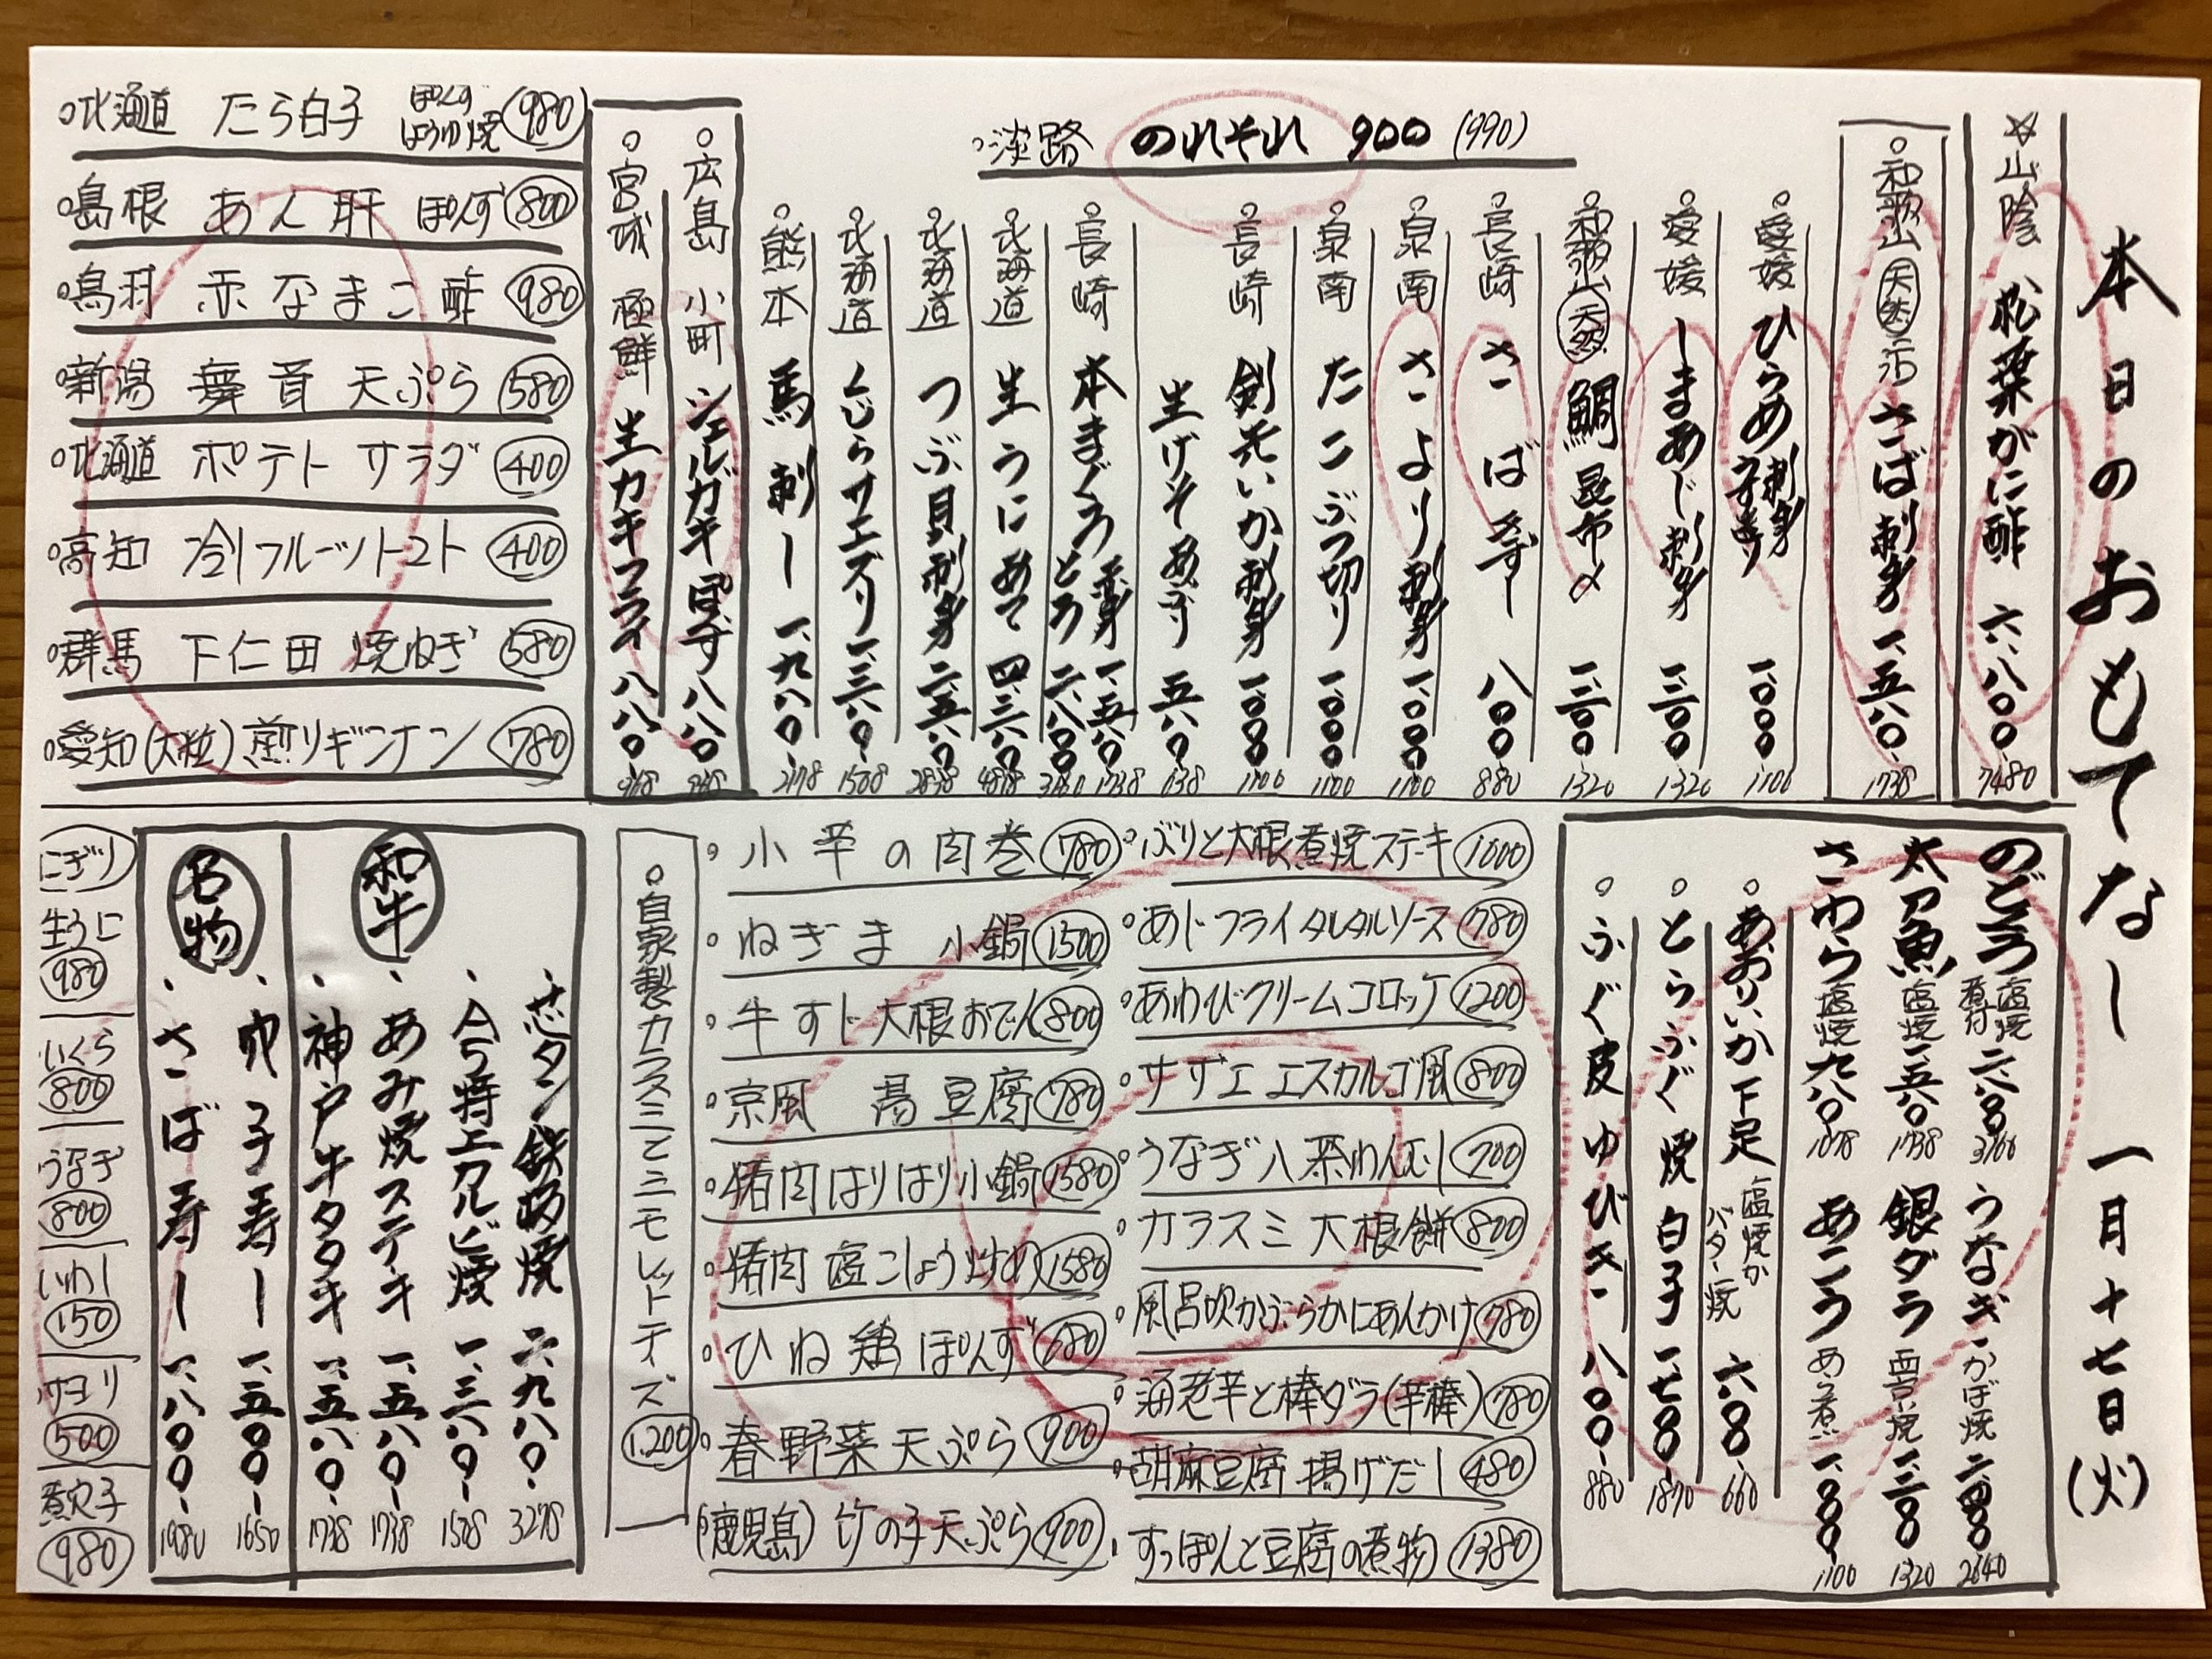 本日のおもてなし 一月十七日(火)
☆山陰 松葉がに酢 六、八〇〇 7480
○和歌山 天然 さば刺身 一、五八〇 1738
○愛媛 ひらめ 刺身 一、〇〇〇 1100
○愛媛 しまあじ刺身 一、二〇〇 1320
○和歌山 天然 鯛昆布〆 一、二〇〇 1320
○長崎 さばきずし 八〇〇 880
○泉南 さより刺身 一、〇〇〇 1100
○泉南 たこぶつ切り 一、〇〇〇 1100
○長崎 剣先いか刺身 一、〇〇〇 1100
生げそ 五八〇 638
○長崎 本まぐろ 赤身 一、五八〇 1738
とろ 二、八〇〇
○北海道 生うにあて 四、三八〇
○北海道 つぶ貝刺身 二、五八〇 2838
○北海道 くじらサエズリ 一、三八〇
○熊本 馬刺し 一、九八〇 2178
○淡路 のれそれ 900 (990)
○広島 小町 シェルガキ ぽんず 八八〇 968
○宮城 極鮮 生カキフライ 八八〇 968
○北海道 たら白子 ぽんず しょうゆ焼 980
○島根 あん肝 ぽんず 800
○鳥羽 赤なまこ酢 980
○新潟 舞茸 天ぷら 580
○北海道 ポテトサラダ 400
○高知 冷しフルーツトマト 400
○群馬 下仁田 焼ねぎ 580
○愛知(大粒)煎りギンナン 780
のどぐろ 塩焼 煮付 二、八八〇
太刀魚 塩焼 一、五八〇 1738
さわら 塩焼 九八〇 1078
うなぎ かば焼 二、四〇〇 2640
銀ダラ 西京焼 一、二〇〇 1320
あこう あら煮 一、〇〇〇 1100
○あおりいか下足 塩焼か バター焼 六〇〇 660
○とらふぐ 焼白子 一、七〇〇 1870
○ふぐ皮ゆびき 八〇〇 880
○ぶりと大根煮焼ステーキ 1000
○あじフライタルタルソース 780
○あわびクリームコロッケ 1200
○サザエ エスカルゴ風 800
○うなぎ 茶わんむし 700
○カラスミ 大根餅 800
○風呂吹かぶらかにあんかけ 780
○海老芋と棒ダラ(芋棒) 780
○胡麻豆腐 揚げだし 480
○すっぽんと豆腐の煮物 1380
○小芋の肉巻 780
○ねぎま 小鍋 1500
○牛すじ大根おでん 800
○京風 湯豆腐 780
○猪肉はりはり小鍋 1580
○猪肉 塩こしょう炒め 1580
○ひね鶏 ぽんず 680
○春野菜 天ぷら 900
(鹿児島) 竹の子天ぷら 900
○自家製カラスミとミモレットチーズ 1,200
和牛
芯タン鉄板焼 二、九八〇 3278
特上カルビ焼 一、三八〇
あみ焼ステーキ 一、五八〇 1738
神戸牛タタキ 一、五八〇 1738
名物
巾子寿し 一、五〇〇 1650
さば寿し 一、八〇〇 1980
にぎり
生うに 980
いくら 800
うなぎ 800
いわし 150
サヨリ 500
煮穴子 980